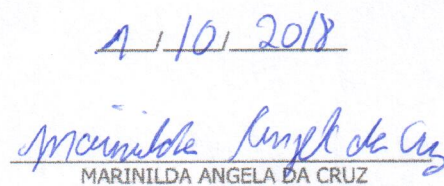 1 / 10 / 2018
Marinilda Angela da Cruz
MARINILDA ANGELA DA CRUZ